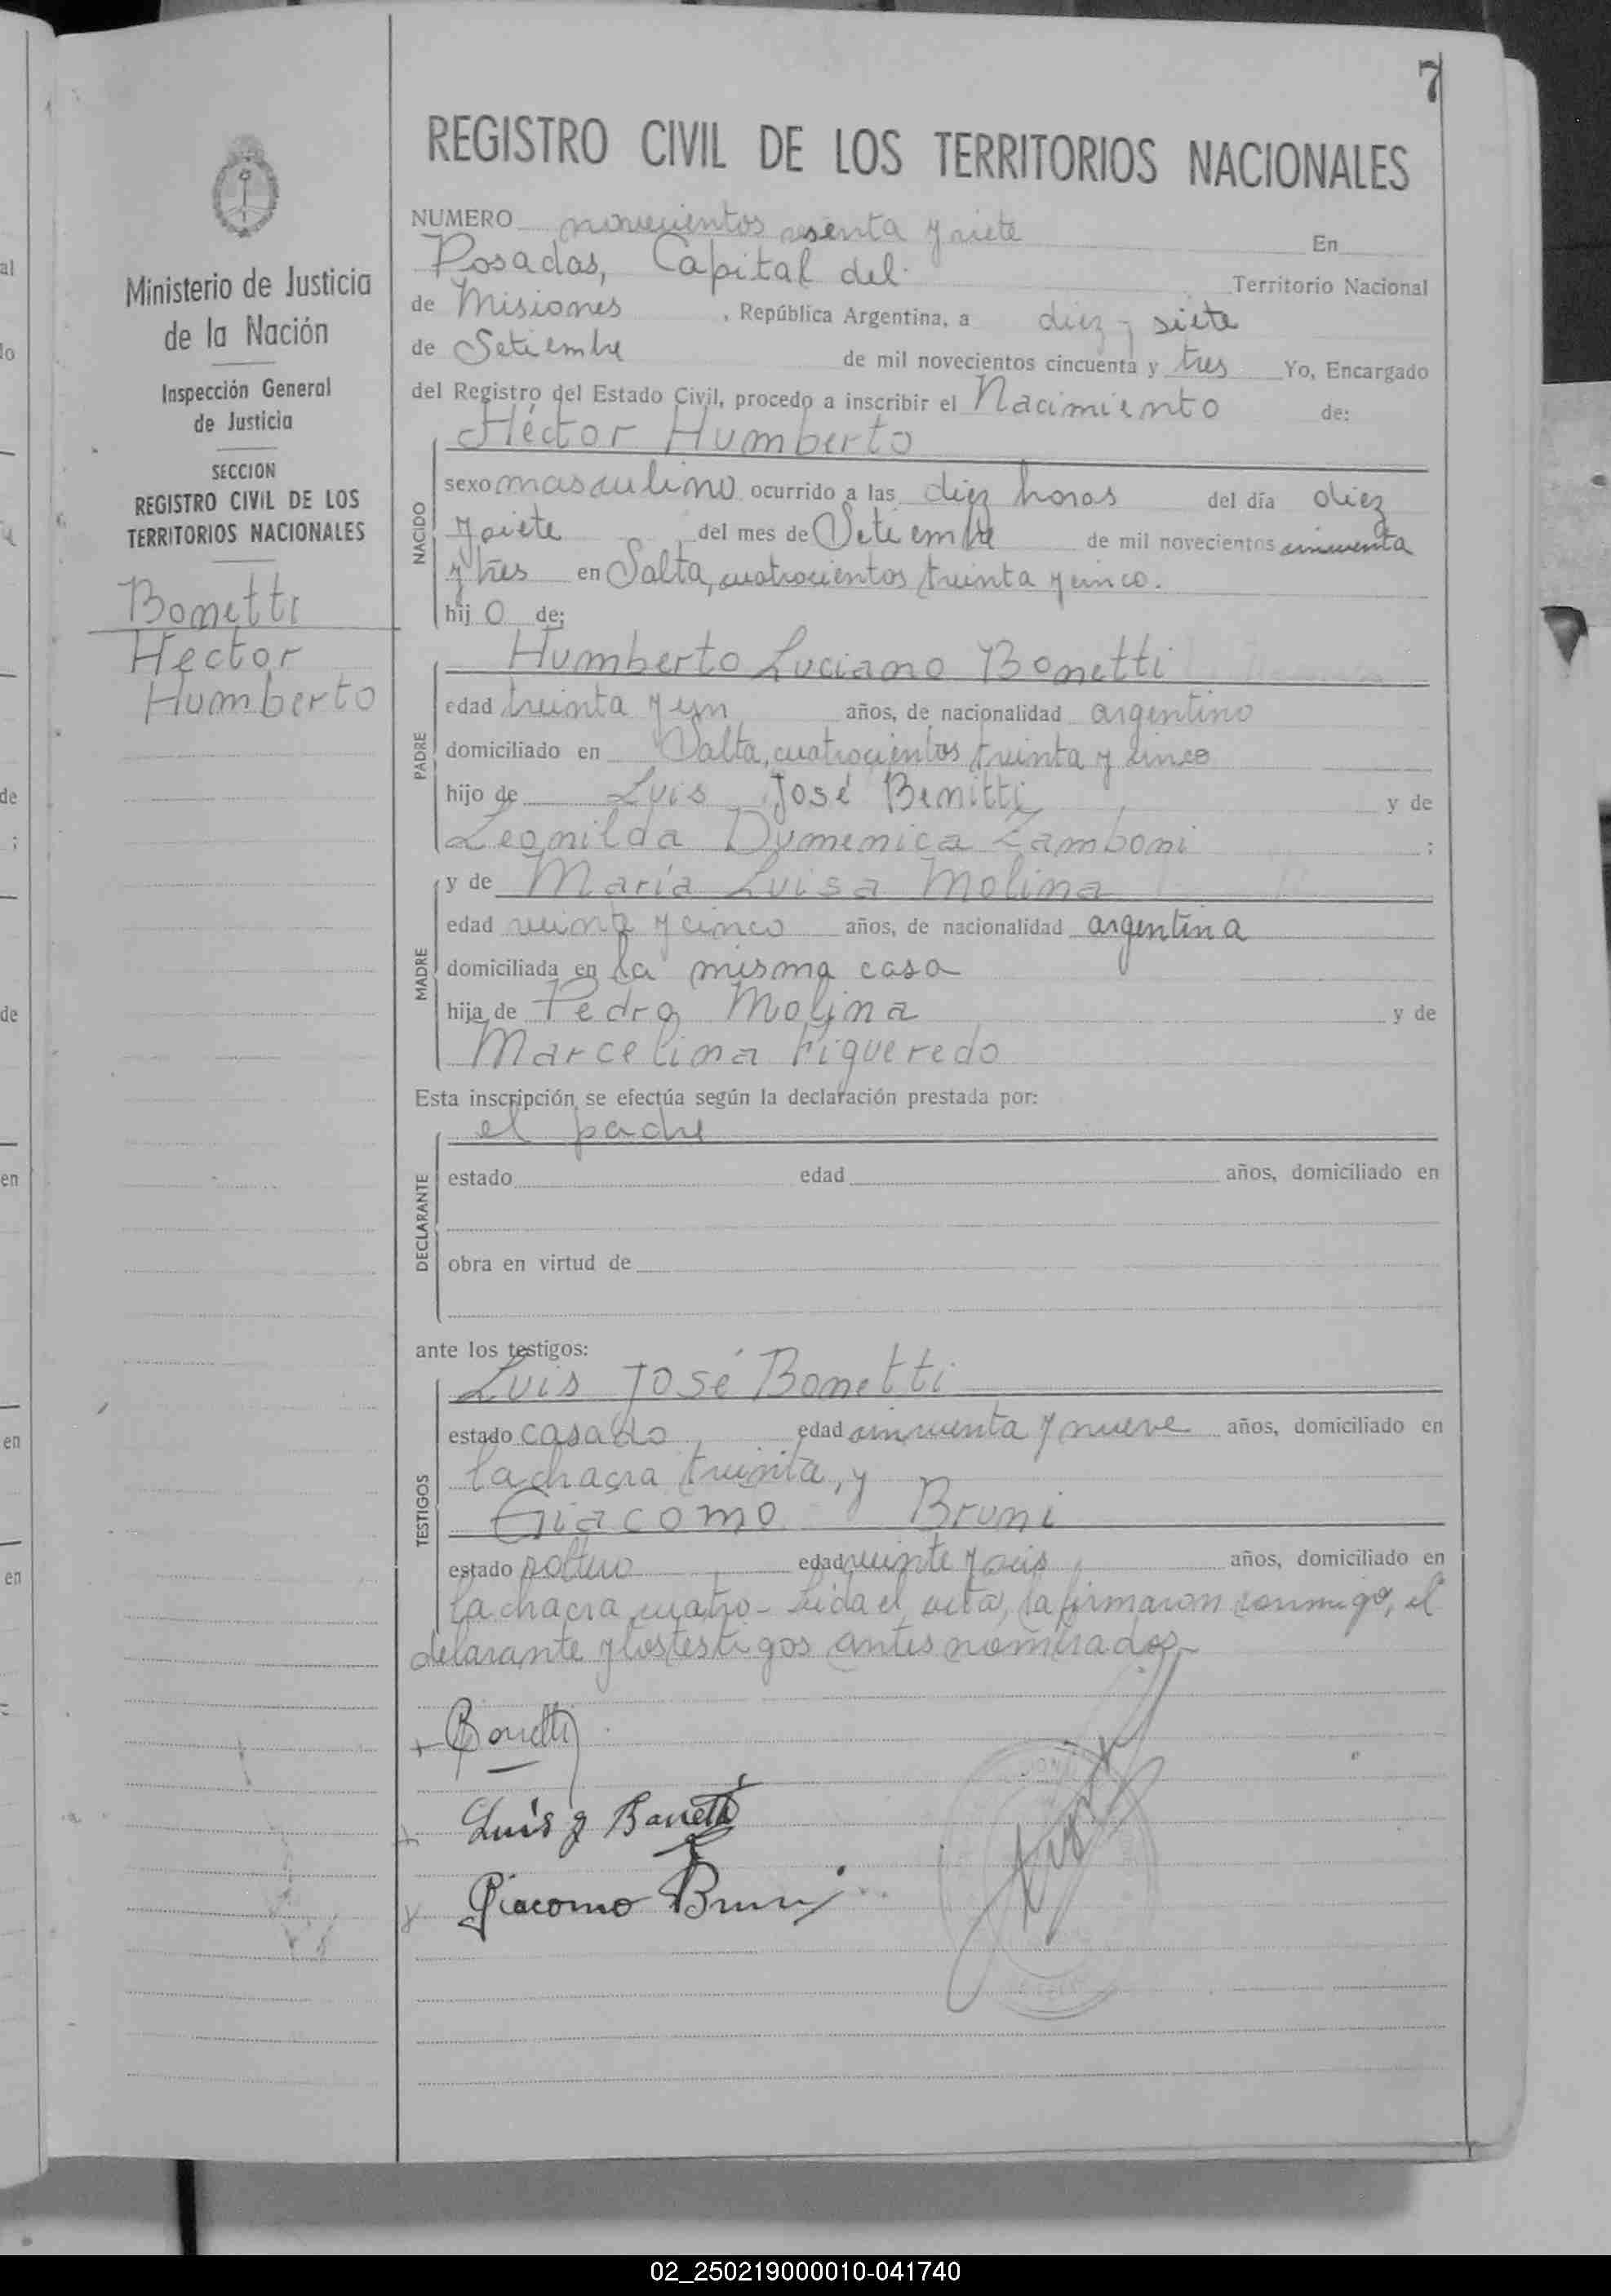 7
REGISTRO CIVIL DE LOS TERRITORIOS NACIONALES
Ministerio de Justicia
de la Nación
Inspección General
de Justicia
SECCION
REGISTRO CIVIL DE LOS
TERRITORIOS NACIONALES
Bonetti
Hector
Humberto
NUMERO novecientos sesenta y siete En
Posadas, Capital del Territorio Nacional
de Misiones, República Argentina, a diez y siete
de Setiembre de mil novecientos cincuenta y tres Yo, Encargado
del Registro del Estado Civil, procedo a inscribir el Nacimiento de:
Héctor Humberto
NACIDO
sexo masculino ocurrido a las diez horas del día diez
y siete del mes de Setiembre de mil novecientos cincuenta
y tres en Salta, cuatrocientos treinta y cinco.
hij o de;
Humberto Luciano Bonetti
PADRE
edad treinta y un años, de nacionalidad argentino
domiciliado en Salta, cuatrocientos treinta y cinco
hijo de Luis José Benitti y de
Leonilda Dumenica Zamboni ;
y de María Luisa Molina
MADRE
edad veinte y cinco años, de nacionalidad argentina
domiciliada en la misma casa
hija de Pedro Molina y de
Marcelina Figueredo
Esta inscripción se efectúa según la declaración prestada por:
el padre
DECLARANTE
estado edad años, domiciliado en
obra en virtud de
ante los testigos:
Luis José Bonetti
TESTIGOS
estado casado edad cincuenta y nueve años, domiciliado en
la chacra treinta, y
Giacomo Bruni
estado soltero edad veinte y seis años, domiciliado en
la chacra cuatro - Leida el acta, la firmaron conmigo, el
delarante y los testigos antes nombrados -
Bonetti
Luis J Bonetti
Giacomo Bruni
02_250219000010-041740